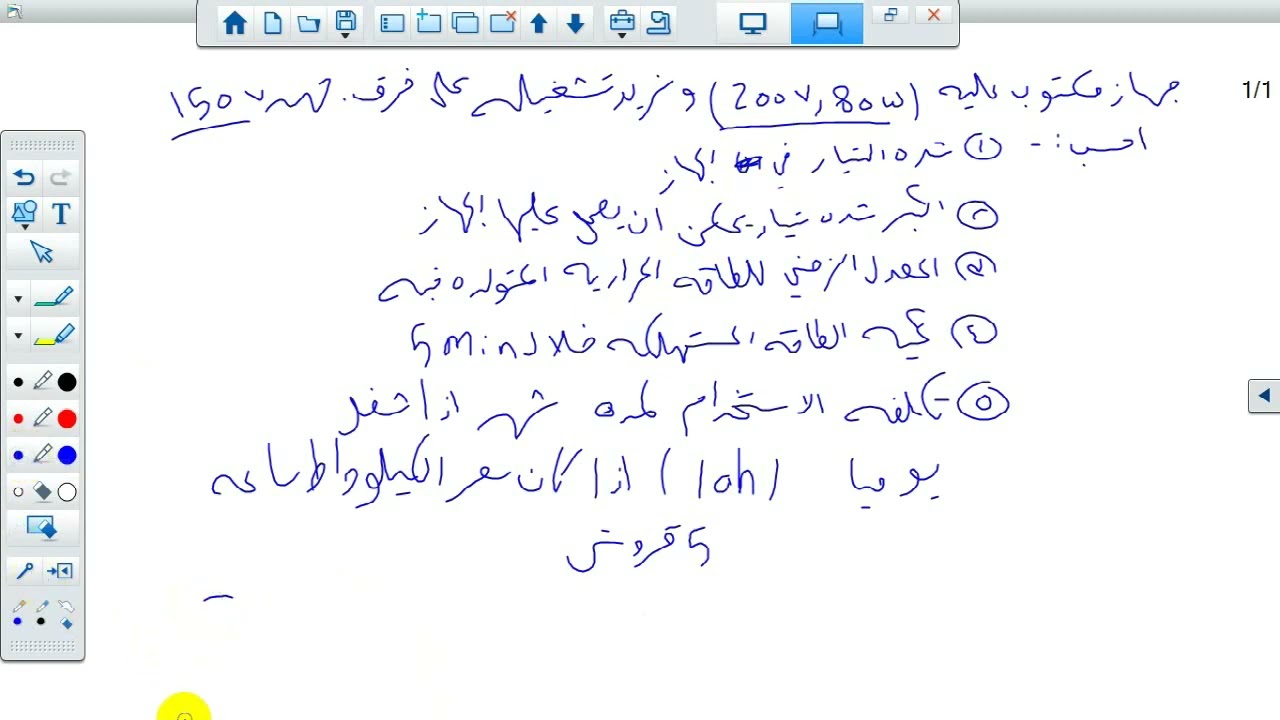 1/1
جهاز مكتوب عليه (200V, 80W) ونريد تشغيله على فرق جهد 150V
احسب :-
① شده التيار في الجهاز
② اكبر شده تيار يمكن ان يعمل عليها الجهاز
③ المعدل الزمني للطاقه الحراريه المتولده فيه
④ كميه الطاقه المستهلكه خلال 5min
⑤ تكلفه الاستخدام لمده شهر اذا شغل
يوميا (10h) اذا كان سعر الكيلو واط ساعه
5 قروش
T